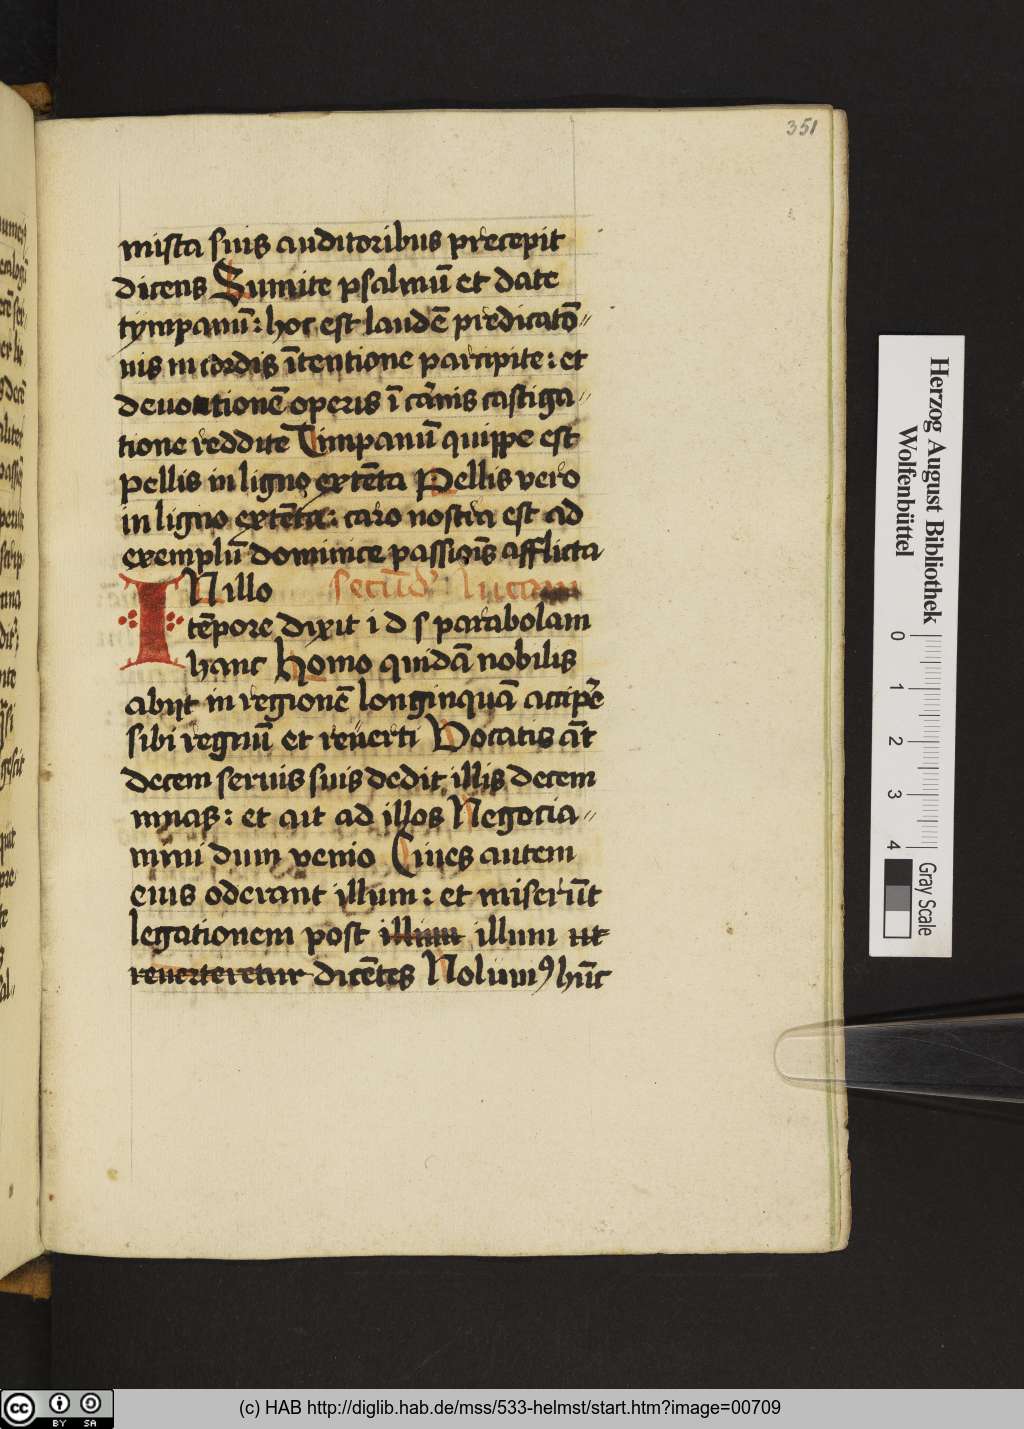 351
mista suis auditoribus precepit
dicens Sumite psalmū et date
tympanū: hoc est laudē predicatō〃
nis in cordis ītentione parcipite: et
deuotionē operis ī carnis castiga〃
tione reddite Timpanū quippe est
pellis in ligno extēta Pellis vero
in ligno extēta: caro nostra est ad
exemplū dominice passiōis afflicta
IN illo secūdꝰ lucam
tēpore dixit i d s parabolam
hanc Homo quidā nobilis
abijt in regionē longinquā accipe
sibi regnū et reuerti Vocatis āt
decem seruis suis dedit illis decem
mnas: et ait ad illos Negocia〃
mini dum venio Ciues autem
eius oderant illum: et miserūt
legationem post illum illum ut
reuerteretur dicētes Nolumꝰ hūc
Herzog August Bibliothek
Wolfenbüttel
0 1 2 3 4
Gray Scale
cc BY SA
(c) HAB http://diglib.hab.de/mss/533-helmst/start.htm?image=00709